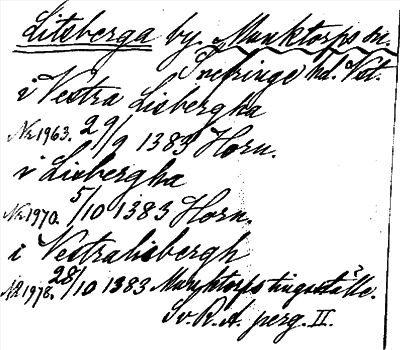 Litsberga by. Munktorps sn.
Snefringe hd. Vstl.
i Vestra Lisbergha
Nr 1963. 29/9 1383 Horn.
i Lisbergha
Nr 1970. 5/10 1383 Horn.
i Vestralisbergh
Nr 1978. 28/10 1383 Munktorps tingsställe.
Sv. R. A. perg. II.